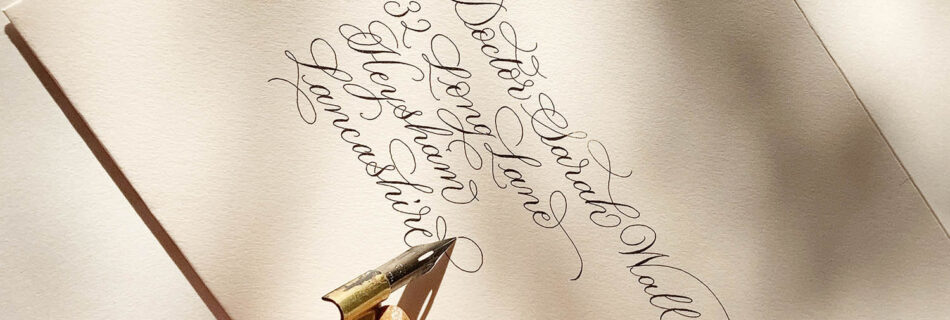 Doctor Sarah Wall
32 Long Lane
Heysham
Lancashire